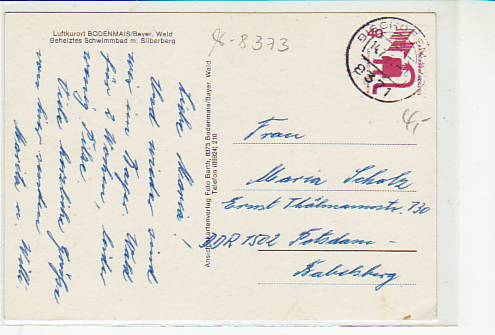 Luftkurort BODENMAIS/Bayer. Wald
Beheiztes Schwimmbad m. Silberberg
%-8373
40
8371
4,-
Liebe Maria!
Und wieder sind
wir im Bayer. Wald
für 2 Wochen, leider
wenig
Viele herzliche Grüße
von hier senden
Maria u. Willi
Ansichtskartenverlag Foto Barth, 8373 Bodenmais/Bayer. Wald
Telefon (09924) 210
Frau
Maria Scholz
Ernst Thälmannstr. 130
DDR 1502 Potsdam-
Babelsberg